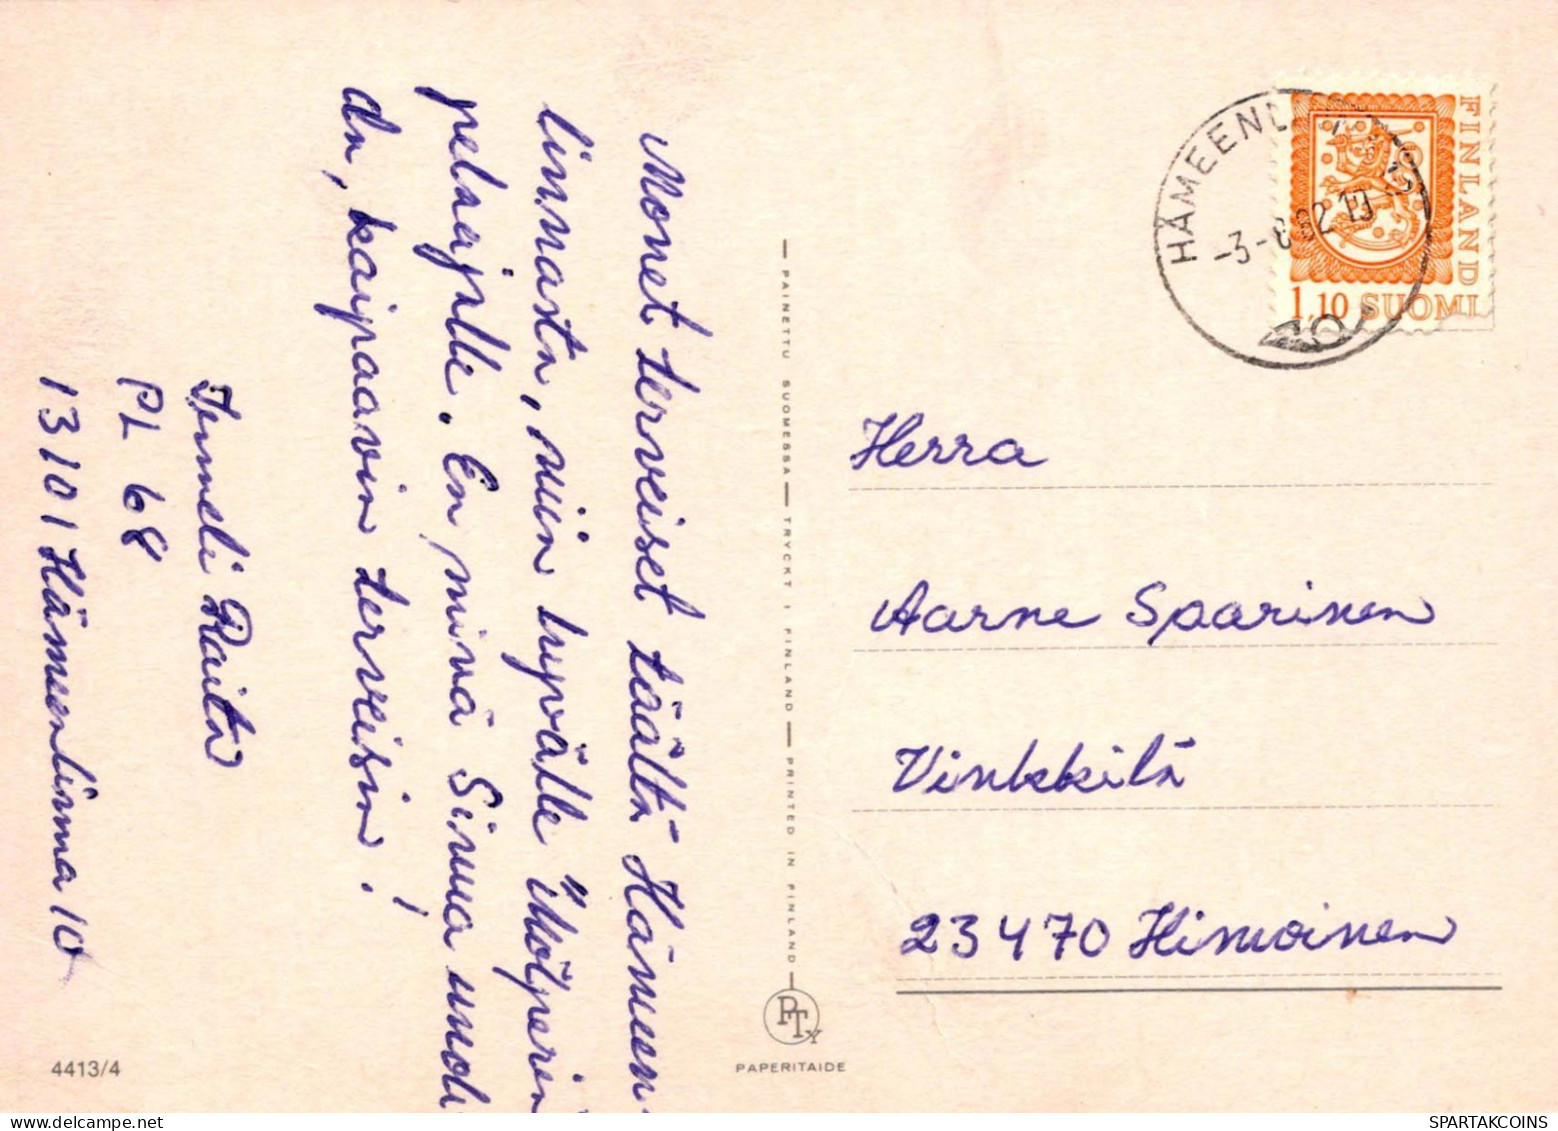 Monet terveiset täältä Hämeen-
linnasta, niin hyvälle
pelaajalle. En minä Sinua unoh
da, kaipaavin terveisin!
Raita
PL 68
13101 Hämeenlinna 10
4413/4
PAINETTU SUOMESSA — TRYCKT I FINLAND — PRINTED IN FINLAND
PTy
PAPERITAIDE
HÄMEENL
-3-8.82.19
FINLAND
1,10 SUOMI
Herra
Aarne Spaarinen
Vinkkilä
23470 Himoinen
SPARTAKCOINS